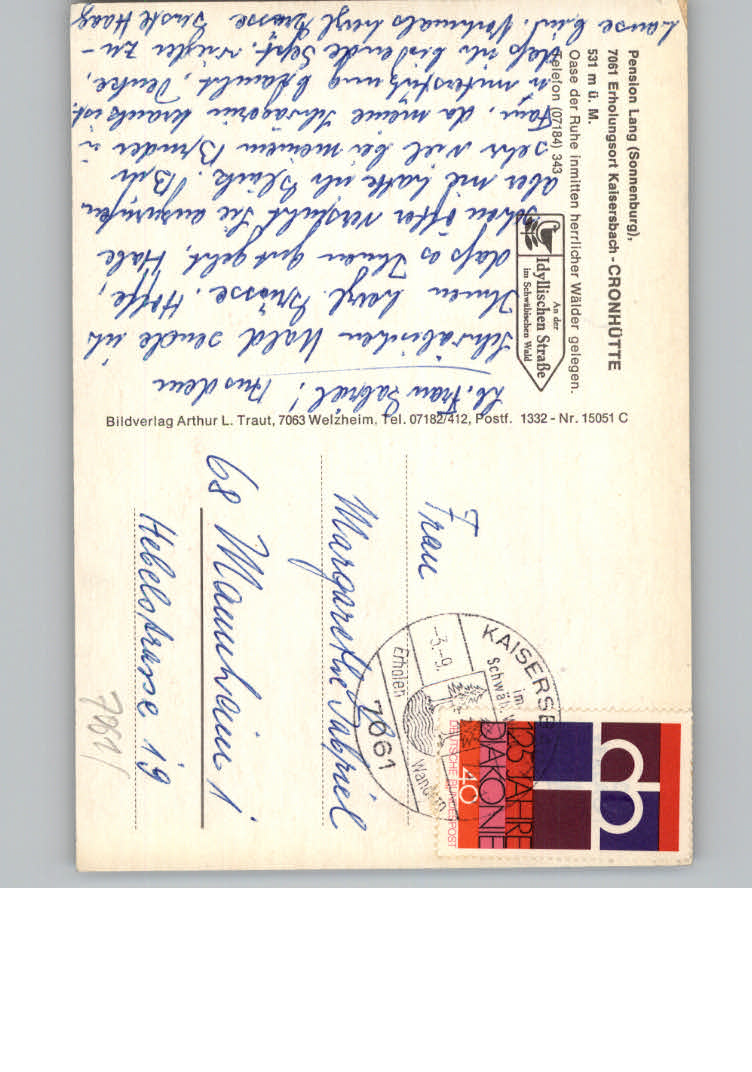 Pension Lang (Sonnenburg),
7061 Erholungsort Kaisersbach - CRONHÜTTE
531 m ü. M.
Oase der Ruhe inmitten herrlicher Wälder gelegen.
Telefon (07184) 343
An der
Idyllischen Straße
im Schwäbischen Wald
Lb. Frau Gabriel! Aus dem
Schwäbischen Wald sende ich
Ihnen herzl. Grüsse. Hoffe,
dass es Ihnen gut geht. Habe
schon öfter versucht Sie anzurufen
aber nie hatte ich Glück. Bin
sehr viel bei meinem Bruder i.
Fam. da meine Schwägerin krank ist.
u. Unterstützung braucht. Denke,
dass ich bis Ende Sept. wieder zu-
Hause bin. Nochmals herzl. Grüsse
Bildverlag Arthur L. Traut, 7063 Welzheim, Tel. 07182/412, Postf. 1332 - Nr. 15051 C
Frau
Margarethe Gabriel
68 Mannheim 1
Hebelstrasse 19
7061
KAISERSB
im
Schwäb. W
-3.-9.
Erholen
Wandern
7061
125 JAHRE
DIAKONIE
40
DEUTSCHE BUNDESPOST